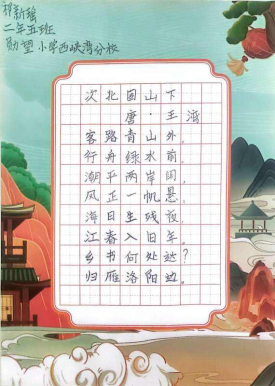 祁新瑶
二年五班
勋望小学西峡湾分校
次北固山下
唐·王湾
客路青山外,
行舟绿水前。
潮平两岸阔,
风正一帆悬。
海日生残夜,
江春入旧年。
乡书何处达?
归雁洛阳边。